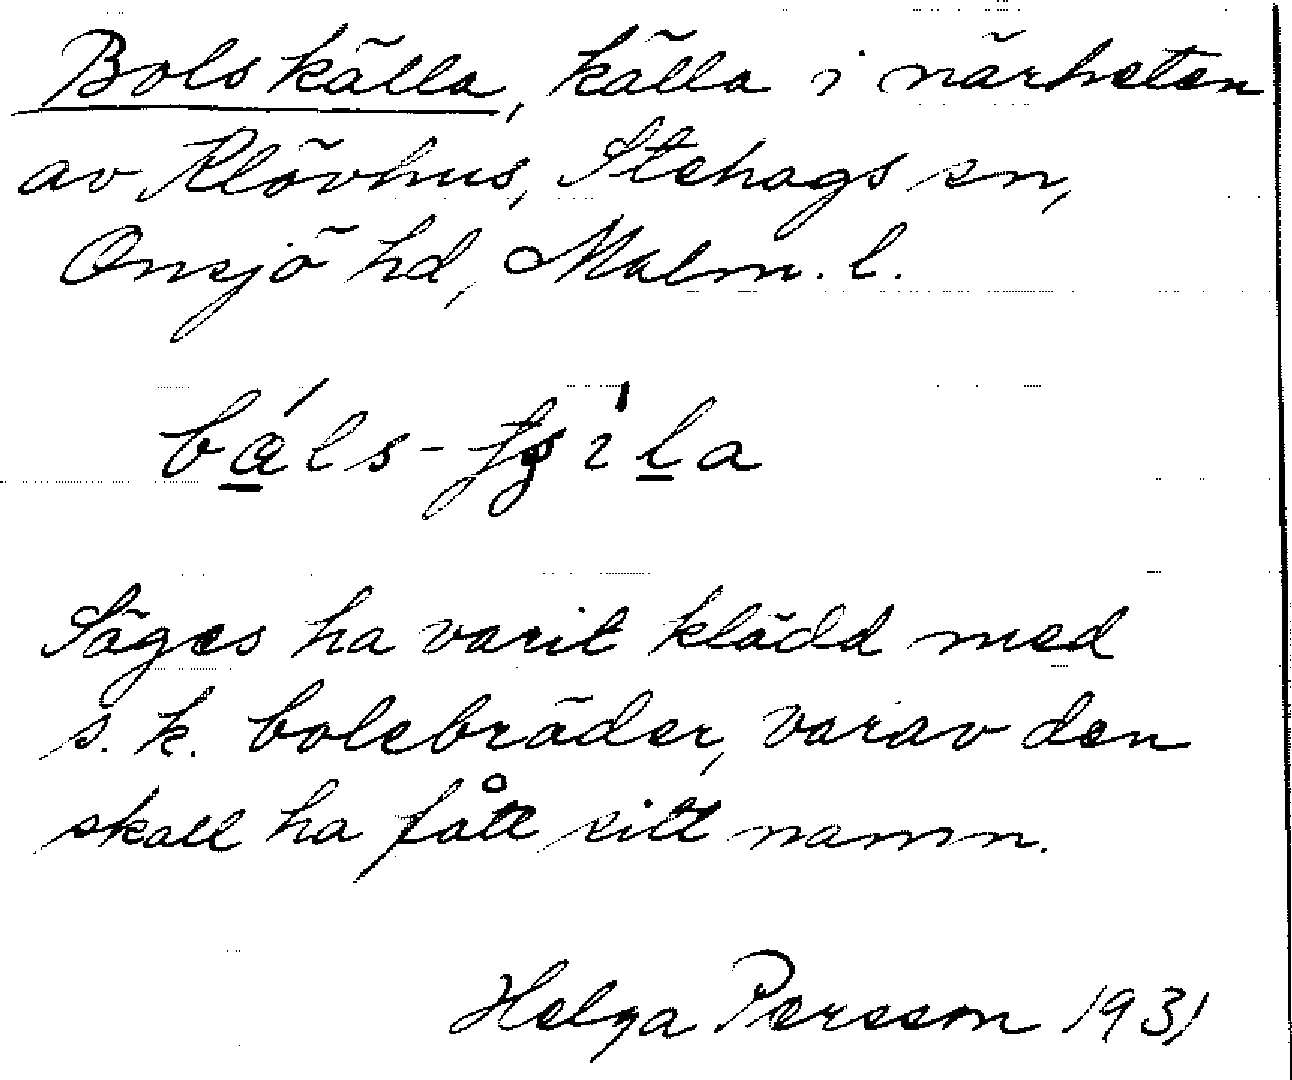 Bolskälla, källa i närheten
av Klövhus, Stehags sn,
Onsjö hd, Malm. l.
Säges ha varit klädd med
s. k. bolebräder, varav den
skall ha fått sitt namn.
Helga Persson 1931